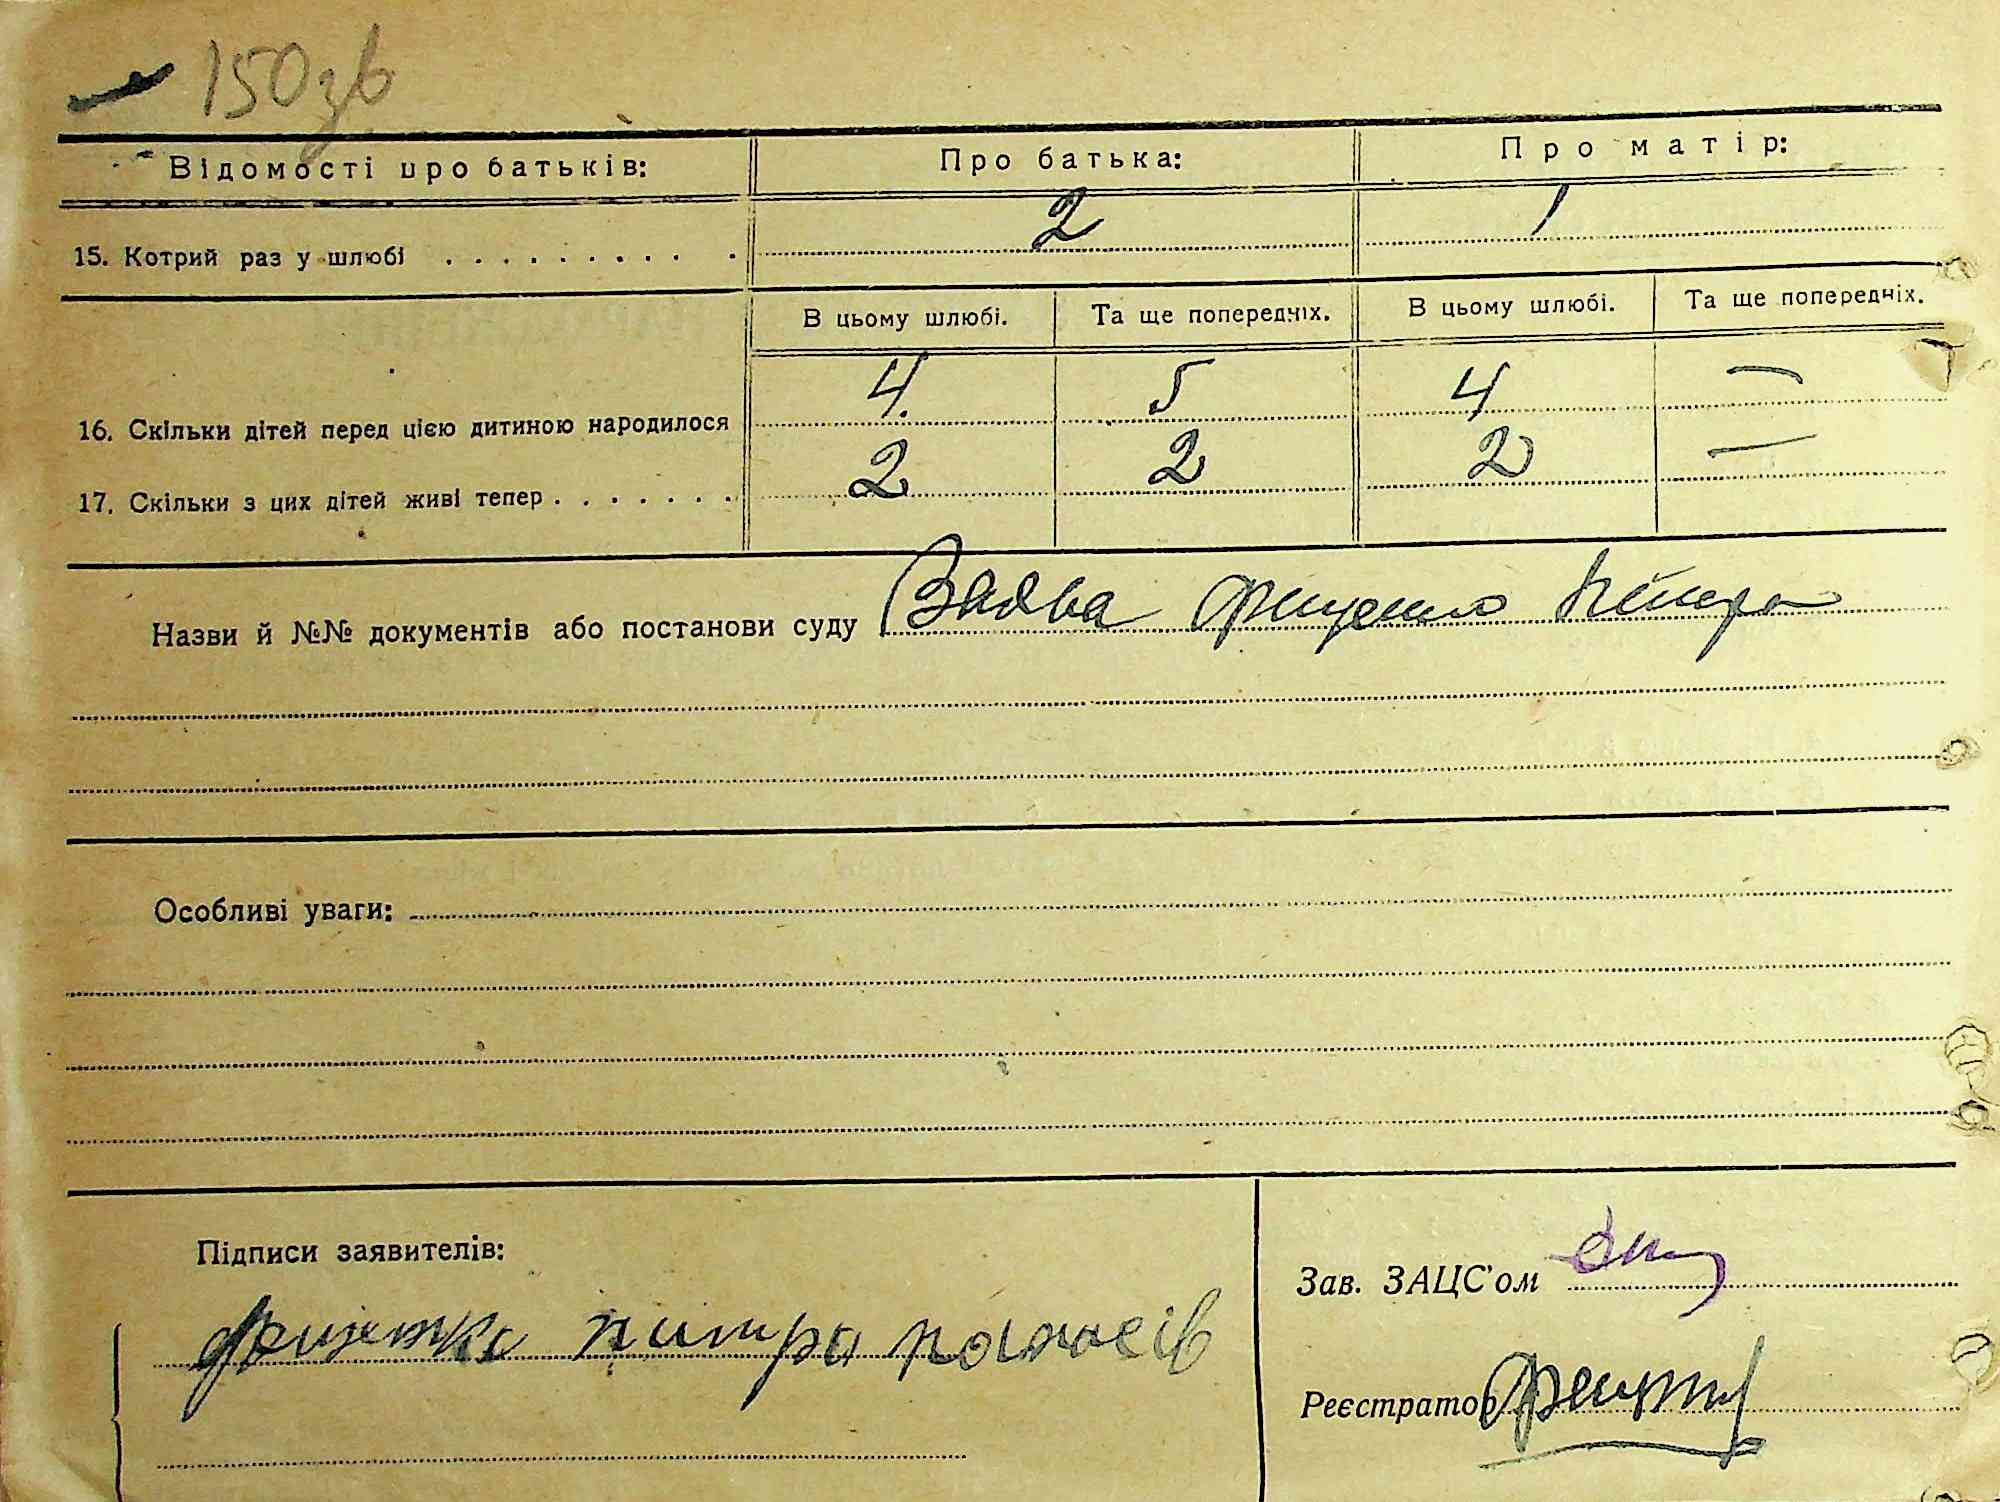 150 зв
Відомості про батьків: Про батька: Про матір:
15. Котрий раз у шлюбі . . . . . . . . . . 2 1
В цьому шлюбі. Та ще попередніх. В цьому шлюбі. Та ще попередніх.
16. Скільки дітей перед цією дитиною народилося 4. 5 4 —
17. Скільки з цих дітей живі тепер . . . . . . . 2 2 2 —
Назви й №№ документів або постанови суду Заява Фещенко Петра
Особливі уваги:
Підписи заявителів:
Зав. ЗАЦС'ом
Фещенко питро панасів
Реєстратор